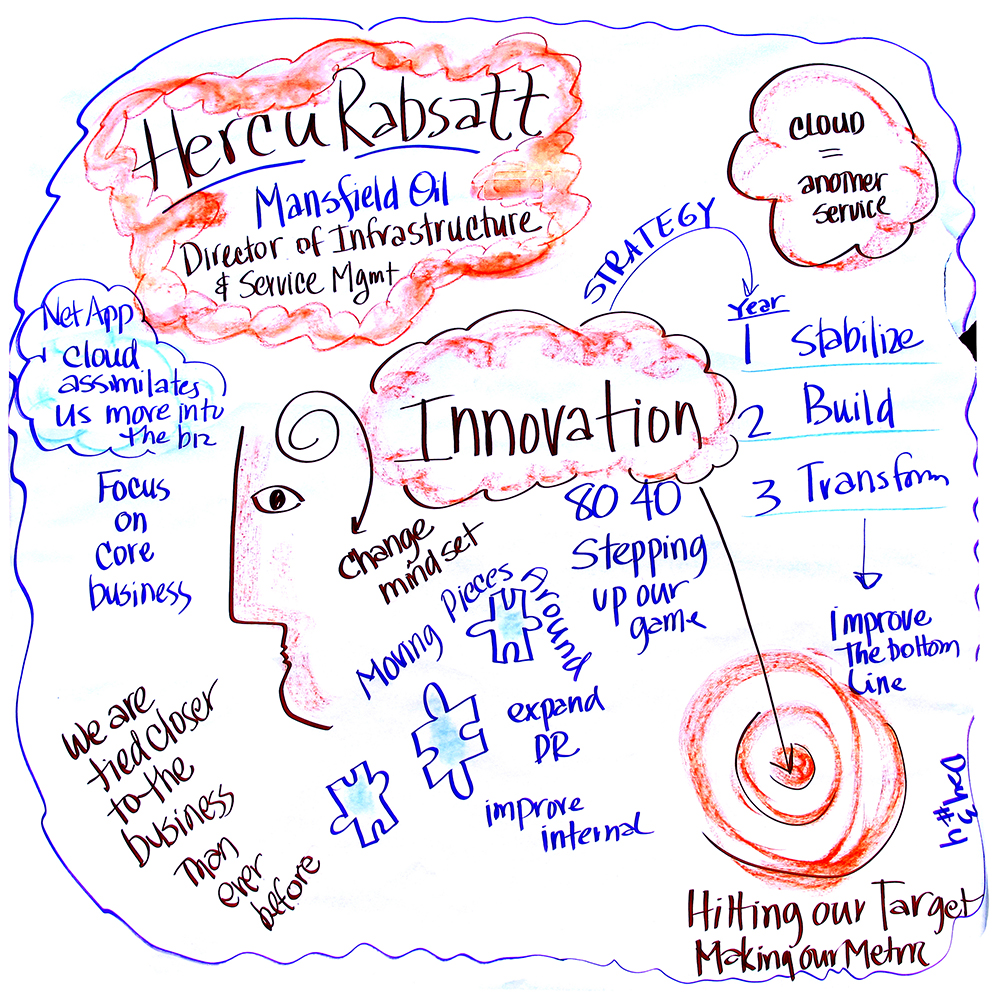 Hercu Rabsatt
Mansfield Oil
Director of Infrastructure
& Service Mgmt
CLOUD
=
another
service
STRATEGY
Year
1 Stabilize
2 Build
3 Transform
improve
the bottom
line
NetApp
cloud
assimilates
us more into
the biz
Focus
on
core
business
Innovation
change
mindset
80 40
Stepping
up our
game
Moving Pieces Around
expand
DR
improve
internal
We are
tied closer
to the
business
Than
ever
before
Hitting our Target
Making our Metric
Day 3
#4